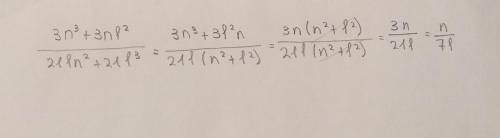 (3n³+3nl²)/(21ln²+21l³) = (3n³+3l²n)/(21l(n²+l²)) = (3n(n²+l²))/(21l(n²+l²)) = 3n/21l = n/7l